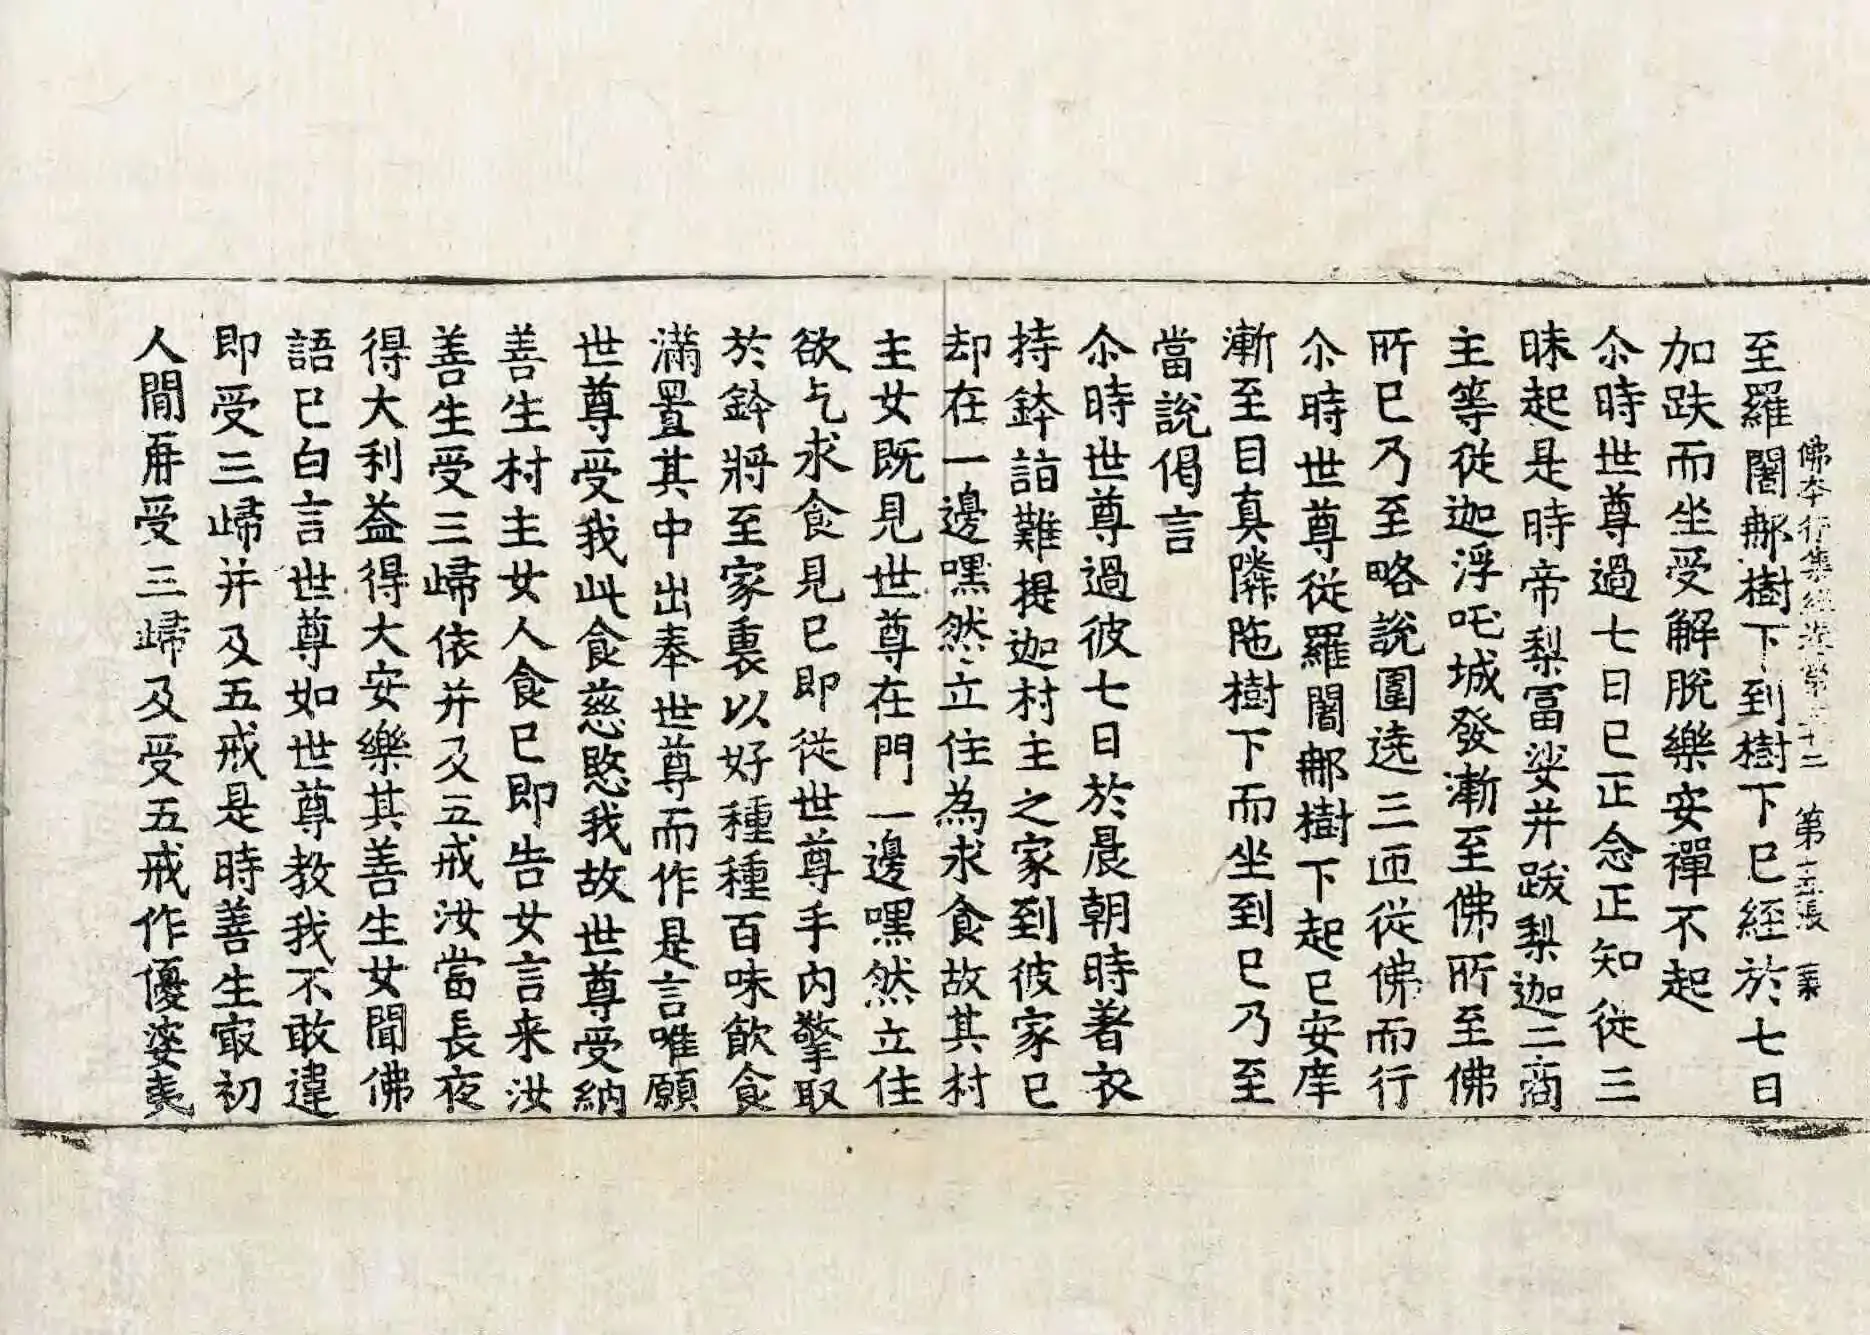 佛本行集經卷第三十二 第十五張 業
至羅闍那樹下到樹下已經於七日
加趺而坐受解脫樂安禪不起
尒時世尊過七日已正念正知從三
昧起是時帝梨冨娑并跋梨迦二商
主等從迦浮吒城發漸至佛所至佛
所已乃至略說圍遶三匝從佛而行
尒時世尊從羅闍那樹下起已安庠
漸至目真隣陁樹下而坐到已乃至
當說偈言
尒時世尊過彼七日於晨朝時著衣
持鉢詣難提迦村主之家到彼家已
却在一邊嘿然立住為求食故其村
主女既見世尊在門一邊嘿然立住
欲乞求食見已即從世尊手內擎取
於鉢將至家裏以好種種百味飲食
滿置其中出奉世尊而作是言唯願
世尊受我此食慈愍我故世尊受納
善生村主女人食已即告女言来汝
善生受三歸依并及五戒汝當長夜
得大利益得大安樂其善生女聞佛
語已白言世尊如世尊教我不敢違
即受三歸并及五戒是時善生㝡初
人間再受三歸及受五戒作優婆夷